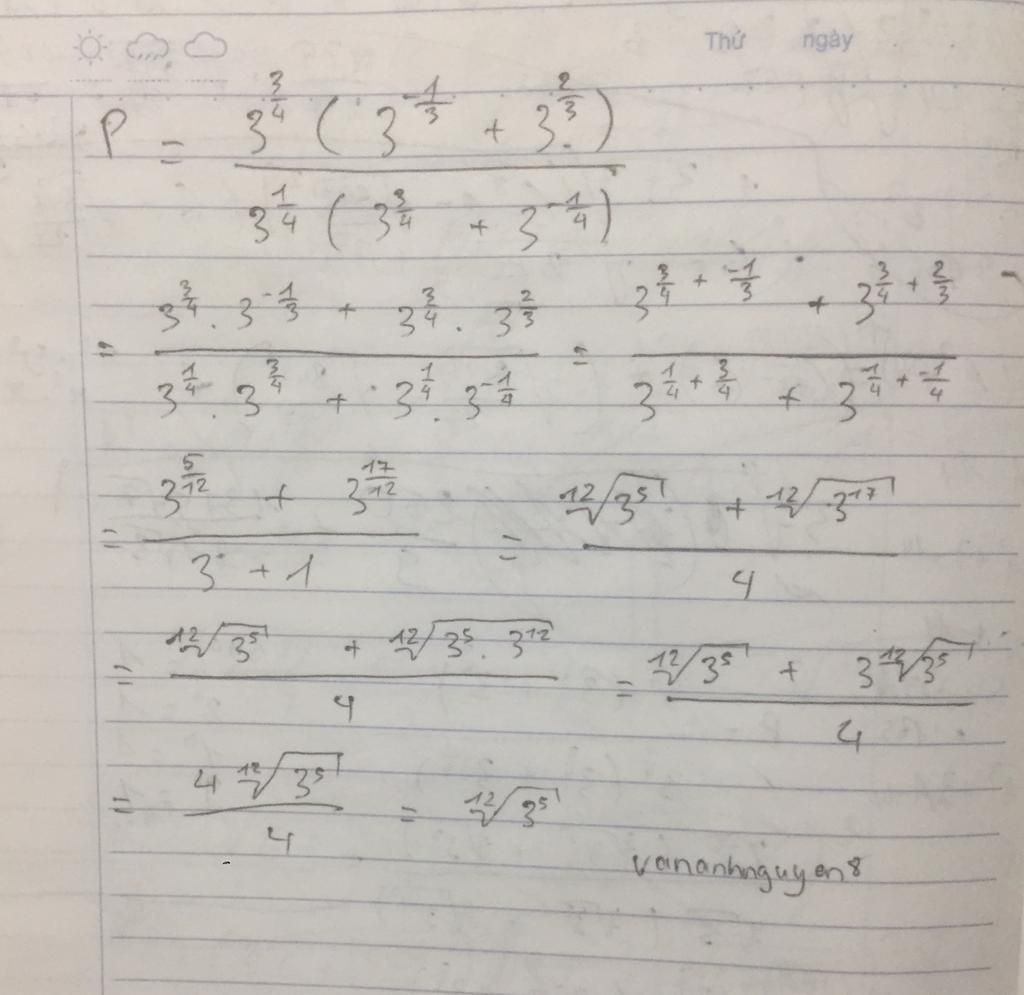 Thứ ngày
P = \frac{3^{\frac{3}{4}} ( 3^{\frac{-1}{3}} + 3^{\frac{2}{3}} )}{3^{\frac{1}{4}} ( 3^{\frac{3}{4}} + 3^{-\frac{1}{4}} )}
= \frac{3^{\frac{3}{4}} . 3^{-\frac{1}{3}} + 3^{\frac{3}{4}} . 3^{\frac{2}{3}}}{3^{\frac{1}{4}} . 3^{\frac{3}{4}} + 3^{\frac{1}{4}} . 3^{-\frac{1}{4}}} = \frac{3^{\frac{3}{4} + \frac{-1}{3}} + 3^{\frac{3}{4} + \frac{2}{3}}}{3^{\frac{1}{4} + \frac{3}{4}} + 3^{\frac{1}{4} + \frac{-1}{4}}}
= \frac{3^{\frac{5}{12}} + 3^{\frac{17}{12}}}{3 + 1} = \frac{\sqrt[12]{3^5} + \sqrt[12]{3^{17}}}{4}
= \frac{\sqrt[12]{3^5} + \sqrt[12]{3^5 . 3^{12}}}{4} = \frac{\sqrt[12]{3^5} + 3\sqrt[12]{3^5}}{4}
= \frac{4\sqrt[12]{3^5}}{4} = \sqrt[12]{3^5}
vananhnguyen8